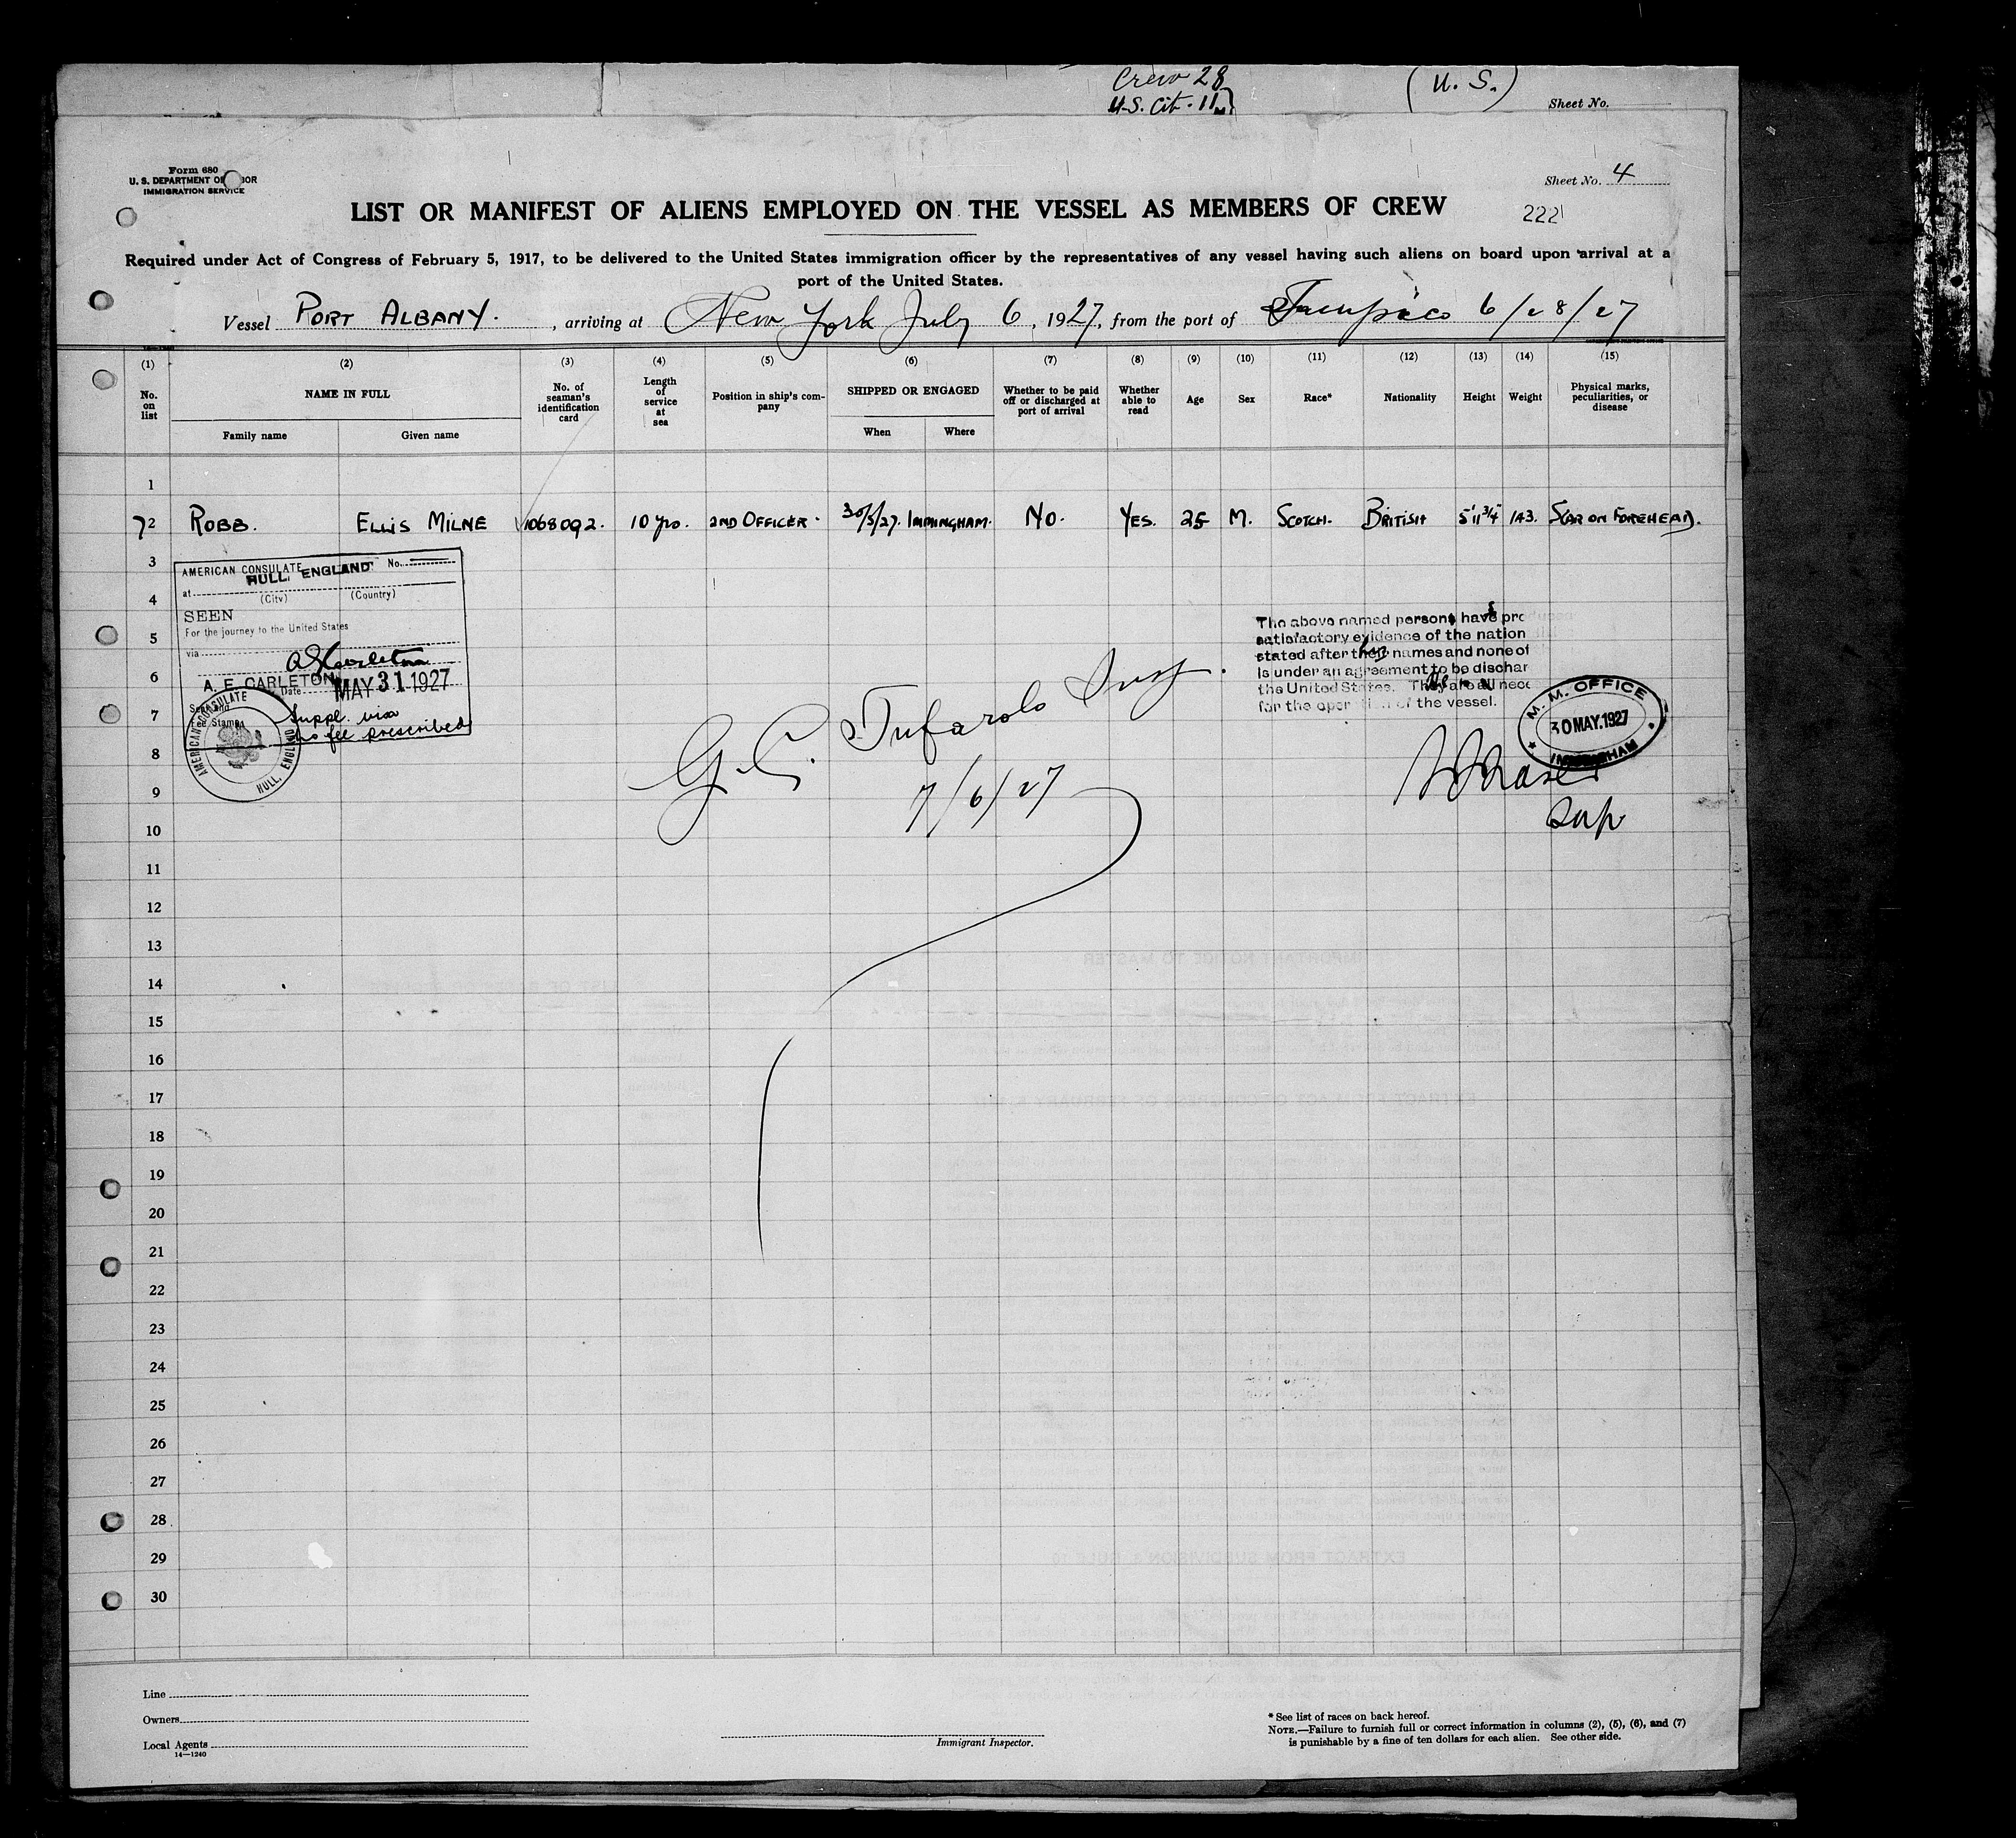 Crew 28
U.S. Cit. 11
(U. S.)
Sheet No.
Form 680
U. S. DEPARTMENT OF LABOR
IMMIGRATION SERVICE
Sheet No. 4
222
LIST OR MANIFEST OF ALIENS EMPLOYED ON THE VESSEL AS MEMBERS OF CREW
Required under Act of Congress of February 5, 1917, to be delivered to the United States immigration officer by the representatives of any vessel having such aliens on board upon arrival at a
port of the United States.
Vessel PORT ALBANY. , arriving at New York July 6, 1927, from the port of Tampico 6/28/27
(1) (2) (3) (4) (5) (6) (7) (8) (9) (10) (11) (12) (13) (14) (15)
No. on list
NAME IN FULL
Family name
Given name
No. of seaman's identification card
Length of service at sea
Position in ship's company
SHIPPED OR ENGAGED
When
Where
Whether to be paid off or discharged at port of arrival
Whether able to read
Age
Sex
Race*
Nationality
Height
Weight
Physical marks, peculiarities, or disease
1
2 ROBB. ELLIS MILNE 1068092. 10 yrs. 2ND OFFICER. 30/5/27. IMMINGHAM. NO. YES. 25 M. SCOTCH. BRITISH 5'11¾" 143. SCAR ON FOREHEAD.
3
4
5
6
7
8
9
10
11
12
13
14
15
16
17
18
19
20
21
22
23
24
25
26
27
28
29
30
AMERICAN CONSULATE No.
HULL, ENGLAND
at
(City) (Country)
SEEN
For the journey to the United States
via
A E Carleton
A. E. CARLETON
Date MAY 31 1927
Seal and
Fee Stamp
Suppl. visa
no fee prescribed
AMERICAN CONSULATE
HULL, ENGLAND
G. C. Tufarolo Insp.
7/6/27
The above named persons have pro
satisfactory evidence of the nation
stated after their names and none of
is under an agreement to be dischar
the United States. They are all nece
for the operation of the vessel.
M. M. OFFICE
30 MAY. 1927
IMMINGHAM
Sup
Line
Owners
Local Agents
14—1240
Immigrant Inspector.
* See list of races on back hereof.
NOTE.—Failure to furnish full or correct information in columns (2), (5), (6), and (7)
is punishable by a fine of ten dollars for each alien. See other side.